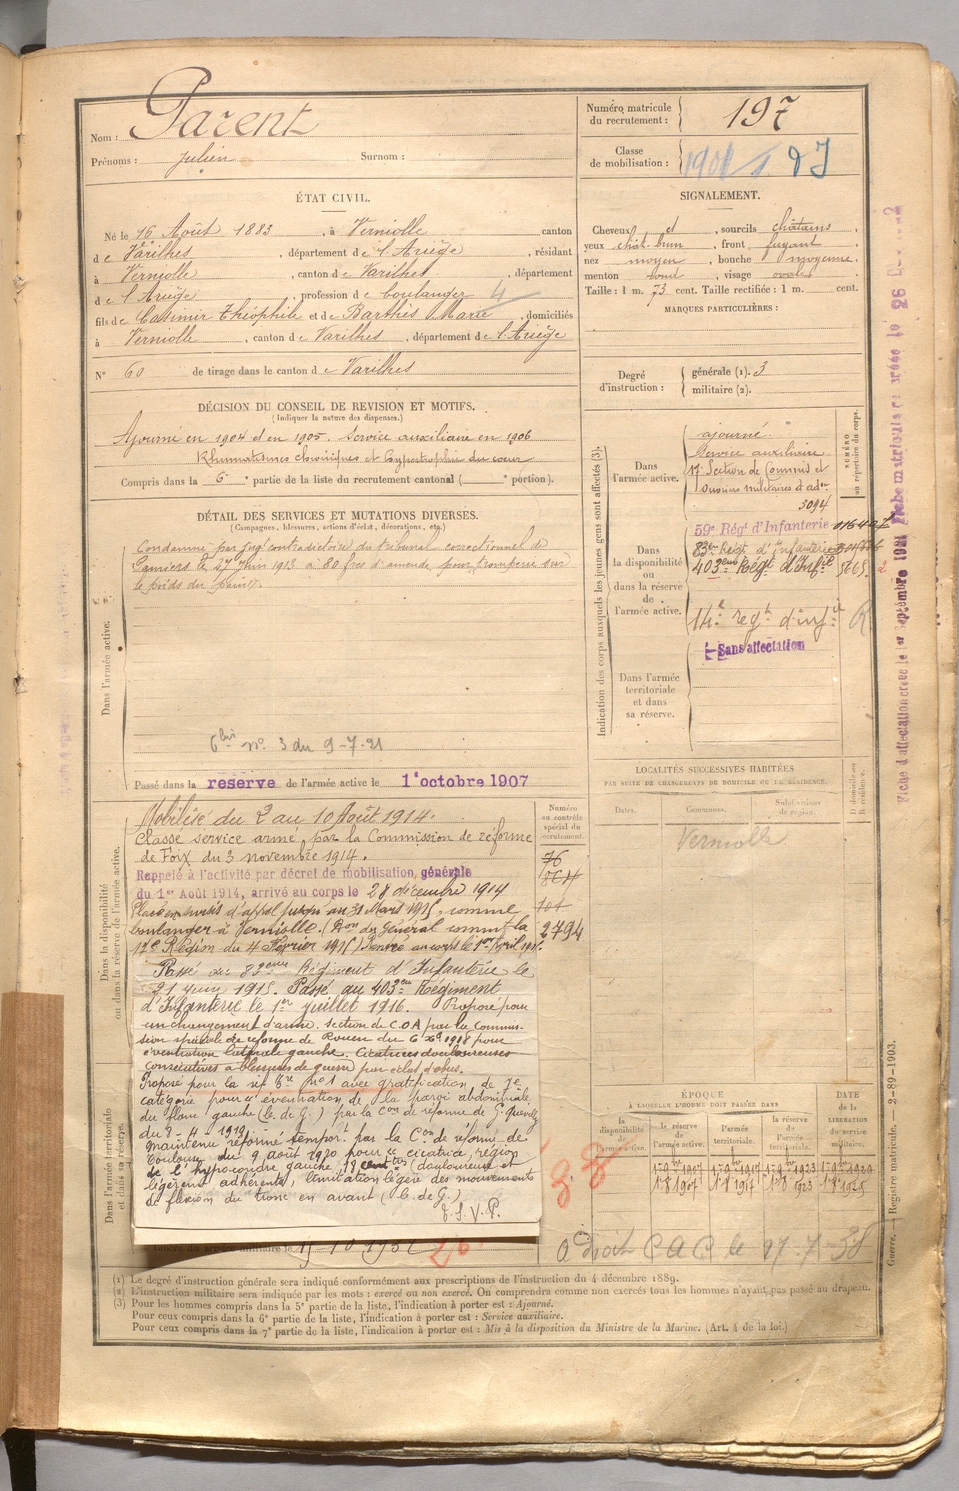 Nom : Parent
Prénoms : Julien Surnom :
Numéro matricule du recrutement : 197
Classe de mobilisation : 1901
ÉTAT CIVIL.
Né le 16 Août 1883, à Verniolle canton
de Varilhes, département de l'Ariège, résidant
à Verniolle, canton de Varilhes, département
de l'Ariège, profession de boulanger 4
fils de Casimir Théophile et de Barthès Marie, domiciliés
à Verniolle, canton de Varilhes, département de l'Ariège
N° 60 de tirage dans le canton de Varilhes
SIGNALEMENT.
Cheveux et, sourcils châtains,
yeux chât. brun, front fuyant,
nez moyen, bouche moyenne,
menton rond, visage ovale.
Taille : 1 m. 73 cent. Taille rectifiée : 1 m. cent.
MARQUES PARTICULIÈRES :
Degré d'instruction : générale (1). 3
militaire (2).
DÉCISION DU CONSEIL DE REVISION ET MOTIFS.
(Indiquer la nature des dispenses.)
Ajourné en 1904 et en 1905. Service auxiliaire en 1906
Rhumatismes chroniques et hypertrophie du cœur
Compris dans la 6e partie de la liste du recrutement cantonal ( e portion).
DÉTAIL DES SERVICES ET MUTATIONS DIVERSES.
(Campagnes, blessures, actions d'éclat, décorations, etc.)
Dans l'armée active.
Condamné par jugt contradictoire du tribunal correctionnel de
Pamiers le 17 juin 1913 à 80 frcs d'amende pour tromperie sur
le poids du pain.
6bis no 3 du 9-7-21
Passé dans la réserve de l'armée active le 1er octobre 1907
Indication des corps auxquels les jeunes gens sont affectés (3).
NUMÉRO au répertoire du corps.
Dans l'armée active.
ajourné.
Service auxiliaire
17e Section de Commis et
Ouvriers militaires d'admon
3094
Dans la disponibilité ou dans la réserve de l'armée active.
59e Régt d'Infanterie 016407
83e Régt d'Infanterie
403ème Régt d'Infie 5665
14e regt d'infie R
Sans affectation
Dans l'armée territoriale et dans sa réserve.
LOCALITÉS SUCCESSIVES HABITÉES
PAR SUITE DE CHANGEMENTS DE DOMICILE OU DE RÉSIDENCE.
Dates. Communes. Subdivisions de région. D domicile ou R résidence.
Verniolle
Dans la disponibilité ou dans la réserve de l'armée active.
Numéro au contrôle spécial du recrutement.
76
101
2794
Mobilisé du 2 au 10 Août 1914.
Classé service armé, par la Commission de réforme
de Foix du 3 novembre 1914.
Rappelé à l'activité par décret de mobilisation générale
du 1er Août 1914, arrivé au corps le 28 décembre 1914
Placé en sursis d'appel jusqu'au 31 Mars 1915, comme
boulanger à Verniolle. (Don du Général commt la
17e Région du 4 Février 1915) Rentré au corps le 1er Avril 1915.
Passé au 83ème Régiment d'Infanterie le
21 juin 1915. Passé au 403ème Régiment
d'Infanterie le 1er juillet 1916. Proposé pour
un changement d'arme. Section de C.O.A par la Commis-
sion spéciale de réforme de Rouen du 6 Xbre 1918 pour
éventration latérale gauche. Cicatrices douloureuses
consécutives à blessures de guerre par éclat d'obus.
Proposé pour la réf. tre no 1 avec gratification de 7e
catégorie pour "éventration de la paroi abdominale
du flanc gauche (B. de G.) par la Con de réforme de G. Quevilly
du 8-4-1919.
Maintenu réformé tempore par la Con de réforme de
Toulouse du 9 août 1920 pour "cicatrice, région
de l'hypocondre gauche, 19 centtres (douloureuse et
légèremt adhérente), limitation légère des mouvements
de flexion du tronc en avant (B. de G.)
T. S. V. P.
Dans l'armée territoriale et dans sa réserve.
Libéré du service militaire le 15-10-1932
ÉPOQUE
À LAQUELLE L'HOMME DOIT PASSER DANS
la disponibilité de l'armée active. la réserve de l'armée active. l'armée territoriale. la réserve de l'armée territoriale. DATE de la LIBÉRATION du service militaire.
1-9bre 1907 1-9bre 1917 1-9bre 1923 1-9bre 1929
1-8 1907 1-8 1917 1-8 1923 1-8 1925
a droit C A C le 27-7-38
Fiche d'affectation créée le 1er Septembre 1921
Guerre. — Registre matricule. — 2-89-1903.
(1) Le degré d'instruction générale sera indiqué conformément aux prescriptions de l'instruction du 4 décembre 1889.
(2) L'instruction militaire sera indiquée par les mots : exercé ou non exercé. On comprendra comme non exercés tous les hommes n'ayant pas passé au drapeau.
(3) Pour les hommes compris dans la 5e partie de la liste, l'indication à porter est : Ajourné.
Pour ceux compris dans la 6e partie de la liste, l'indication à porter est : Service auxiliaire.
Pour ceux compris dans la 7e partie de la liste, l'indication à porter est : Mis à la disposition du Ministre de la Marine. (Art. 4 de la loi.)